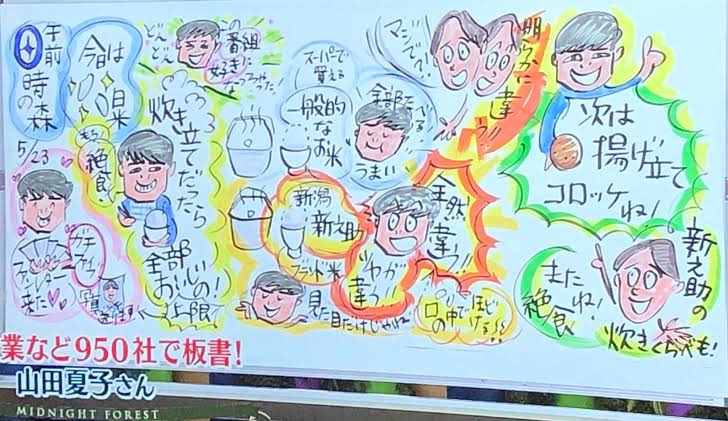 午前
0時の森
今日は
白米
5/23
ファンレター
来た
ガチ
アイス
どんどん
この番組
好きに
なっちゃった
まる
絶食
炊き立てだったら
全部
おいしいの!
上限
スーパーで
買える
一般的
なお米
全部
うまい
新潟
新之助
ブランド米
見た目だけじゃねぇ
マジで!
明らかに
違う!!
全然
違う!!
ツヤが
違う!!
口の中で
ほどける
次は
揚げ立て
コロッケね!
またね!
絶食
新之助の
炊きくらべも!
業など950社で板書!
山田夏子さん
MIDNIGHT FOREST